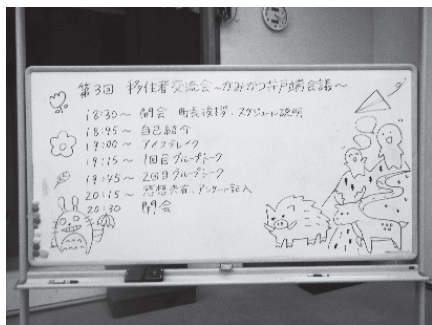 第3回 移住者交流会～かみかつ井戸端会議～
18:30～ 開会 町長挨拶、スケジュール説明
18:45～ 自己紹介
19:00～ アイスブレイク
19:15～ 1回目グループトーク
19:45～ 2回目グループトーク
20:15～ 感想共有、アンケート記入
20:30 閉会